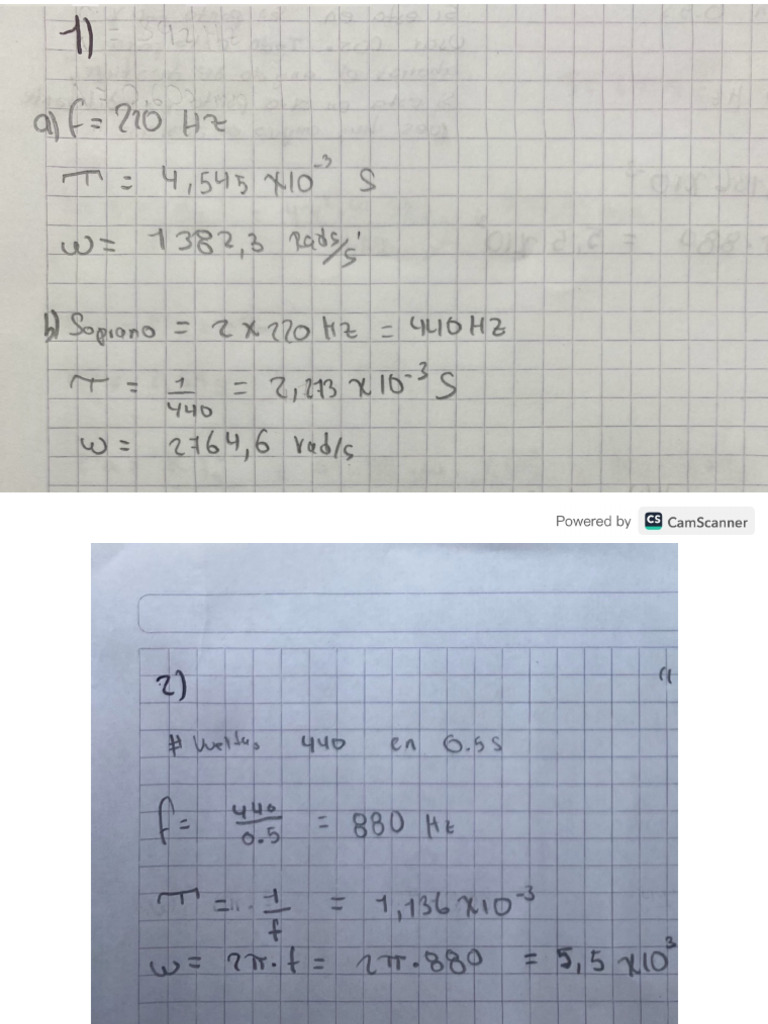 1)
a) f = 220 Hz
T = 4,545 x10⁻³ S
ω = 1382,3 rads/s
b) Soprano = 2 x 220 Hz = 440 Hz
T = 1/440 = 2,273 x 10⁻³ S
ω = 2764,6 rad/s
Powered by CS CamScanner
2)
# Vueltas 440 en 0.5 s
f = 440/0.5 = 880 Hz
T = 1/f = 1,136 x10⁻³
ω = 2π · f = 2π · 880 = 5,5 x10³